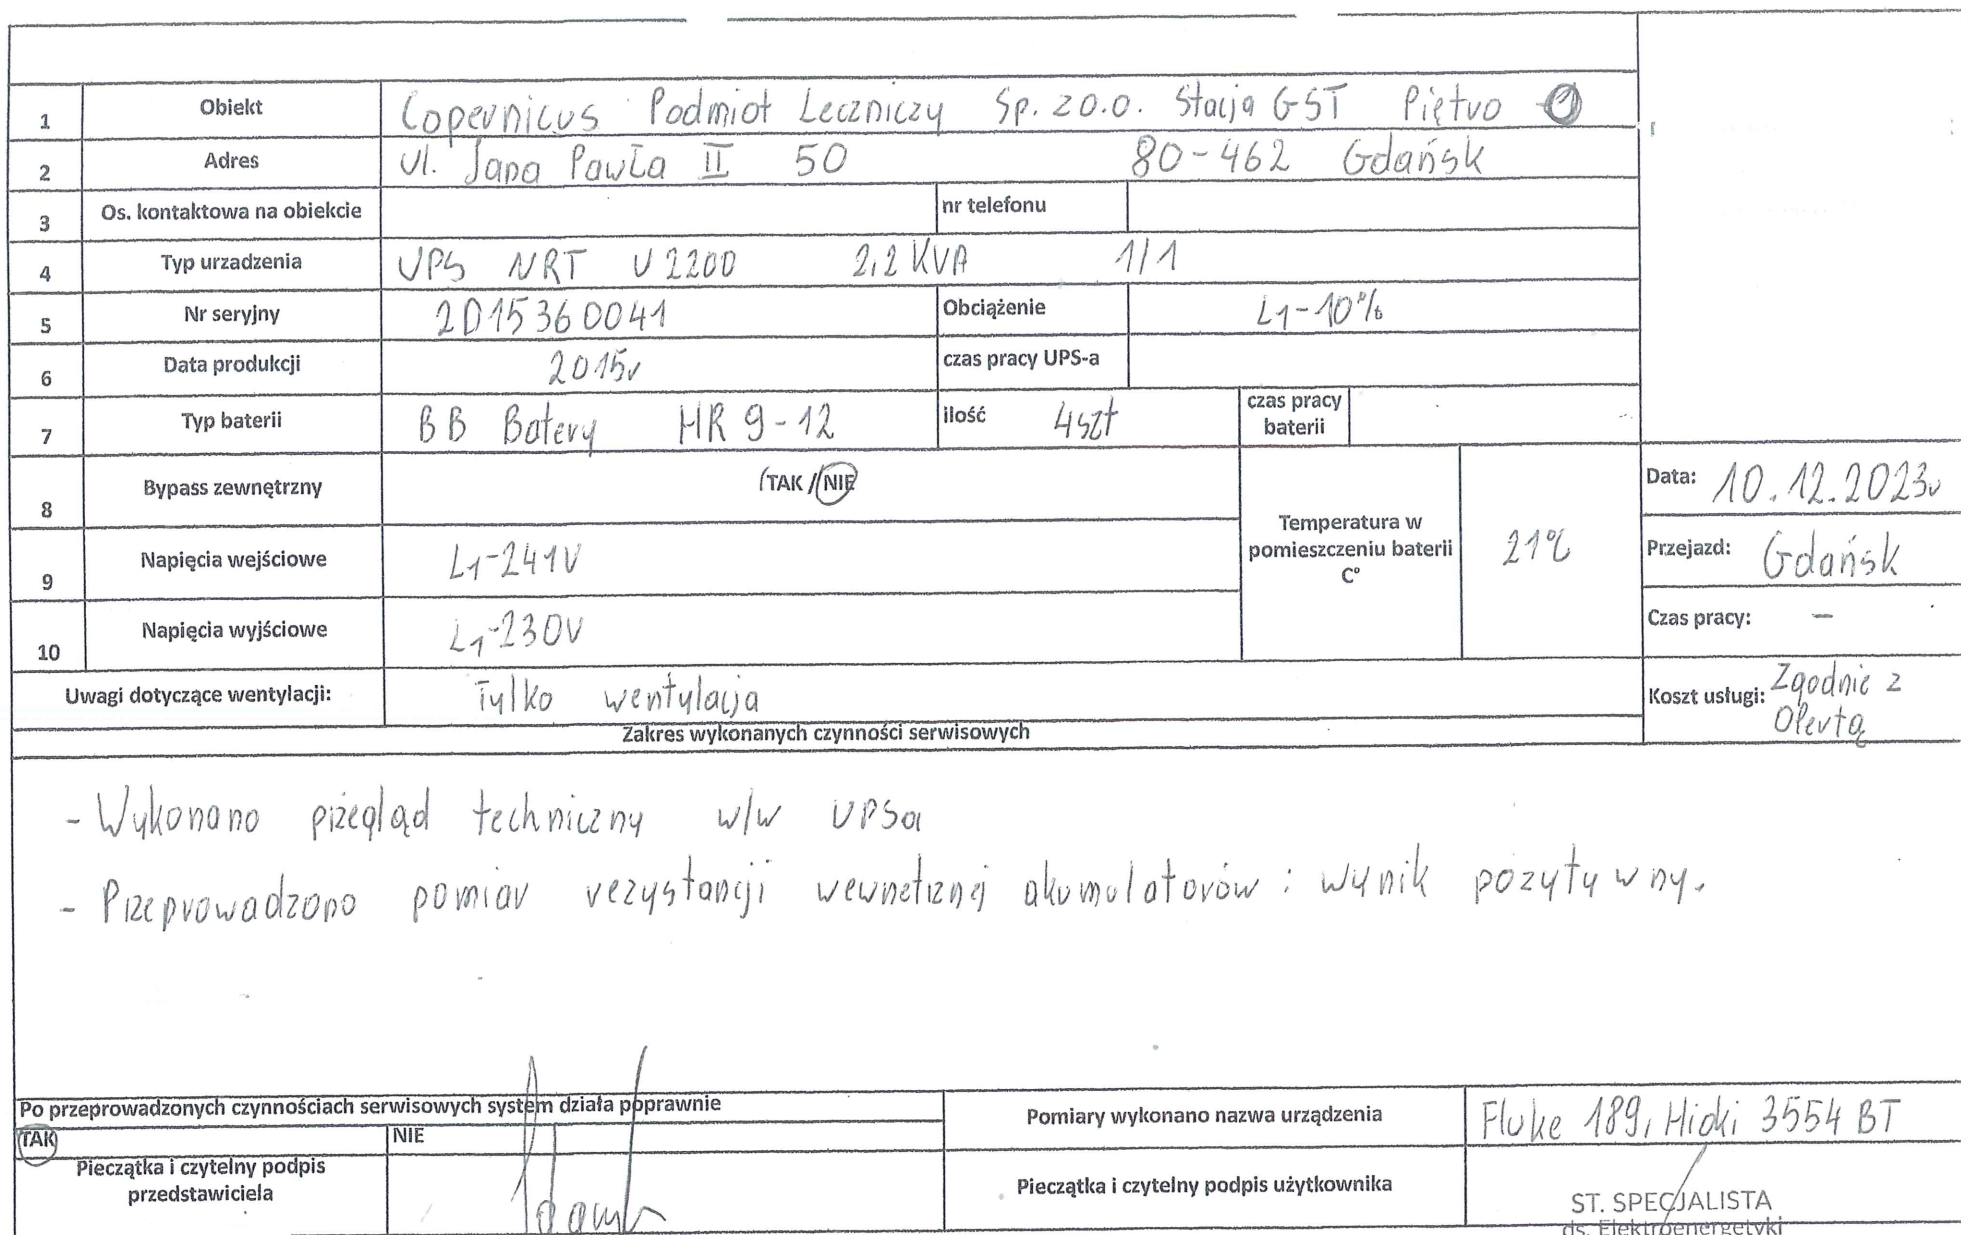 1 Obiekt Copernicus Podmiot Leczniczy Sp. z o.o. Stacja GST Piętro
2 Adres ul. Jana Pawła II 50 80-462 Gdańsk
3 Os. kontaktowa na obiekcie nr telefonu
4 Typ urzadzenia UPS NRT U2200 2,2 KVA 1/1
5 Nr seryjny 2D15360041 Obciążenie L1-10%
6 Data produkcji 2015r czas pracy UPS-a
7 Typ baterii BB Batery HR 9-12 ilość 4szt czas pracy baterii
8 Bypass zewnętrzny (TAK / NIE
Temperatura w pomieszczeniu baterii C° 21°C
Data: 10.12.2023r
9 Napięcia wejściowe L1-241V
Przejazd: Gdańsk
10 Napięcia wyjściowe L1-230V
Czas pracy: –
Uwagi dotyczące wentylacji: Tylko wentylacja
Koszt usługi: Zgodnie z
Ofertą
Zakres wykonanych czynności serwisowych
- Wykonano przegląd techniczny w/w UPSa
- Przeprowadzono pomiar rezystancji wewnetrznej akumulatorów : wynik pozytywny.
Po przeprowadzonych czynnościach serwisowych system działa poprawnie
TAK NIE
Pomiary wykonano nazwa urządzenia Fluke 189, Hioki 3554 BT
Pieczątka i czytelny podpis
przedstawiciela
Pieczątka i czytelny podpis użytkownika
ST. SPECJALISTA
ds. Elektroenergetyki